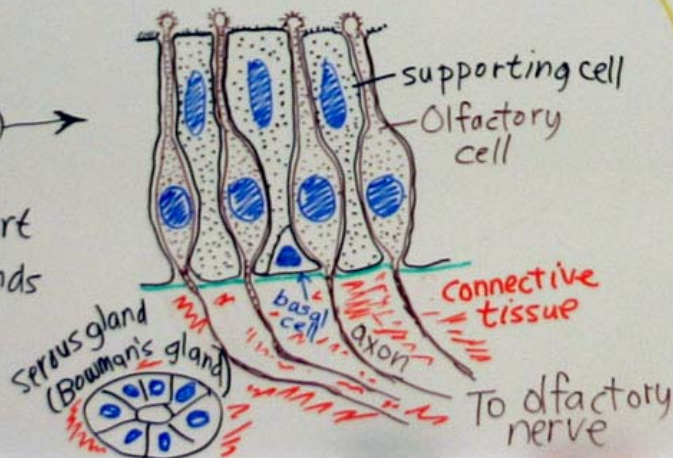 supporting cell
Olfactory
cell
rt
nds
connective
tissue
basal
cell
axon
serous gland
(Bowman's gland)
To olfactory
nerve